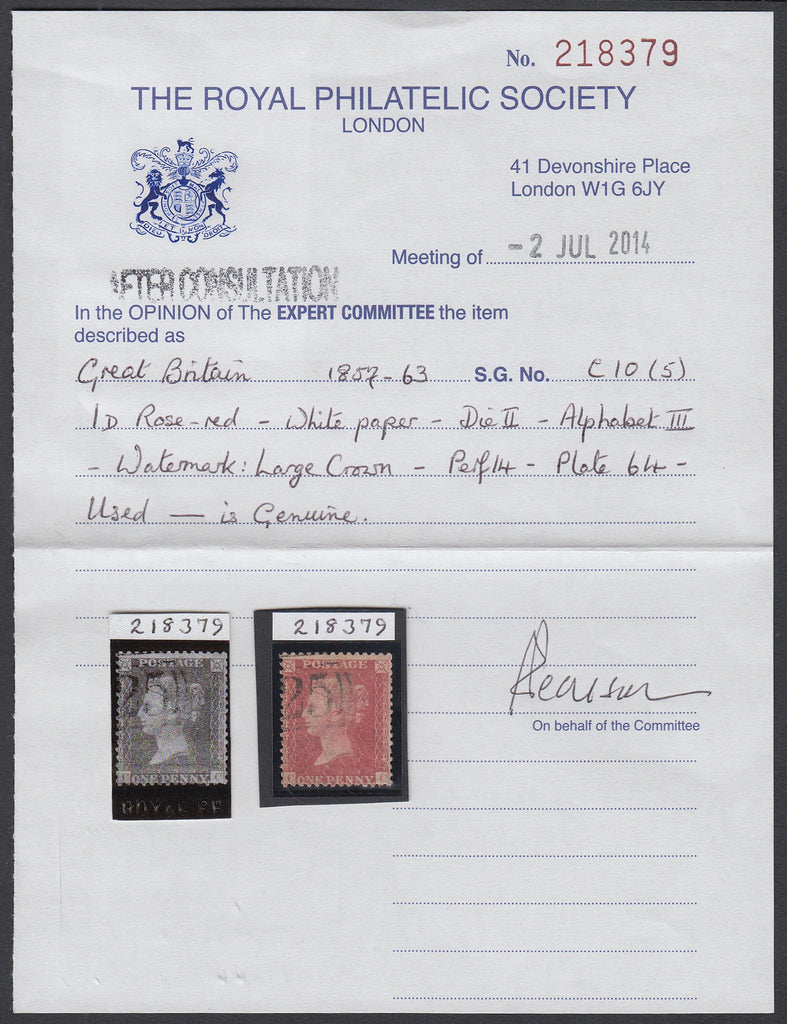 No. 218379
THE ROYAL PHILATELIC SOCIETY
LONDON
41 Devonshire Place
London W1G 6JY
DIEU ET MON DROIT
Meeting of - 2 JUL 2014
AFTER CONSULTATION
In the OPINION of The EXPERT COMMITTEE the item
described as
Great Britain 1857-63 S.G. No. C10(5)
1D Rose-red - White paper - Die II - Alphabet III
- Watermark: Large Crown - Perf 14 - Plate 64 -
Used — is Genuine.
218379
218379
POSTAGE
251
C ONE PENNY. G
POSTAGE
251
C ONE PENNY. G
On behalf of the Committee